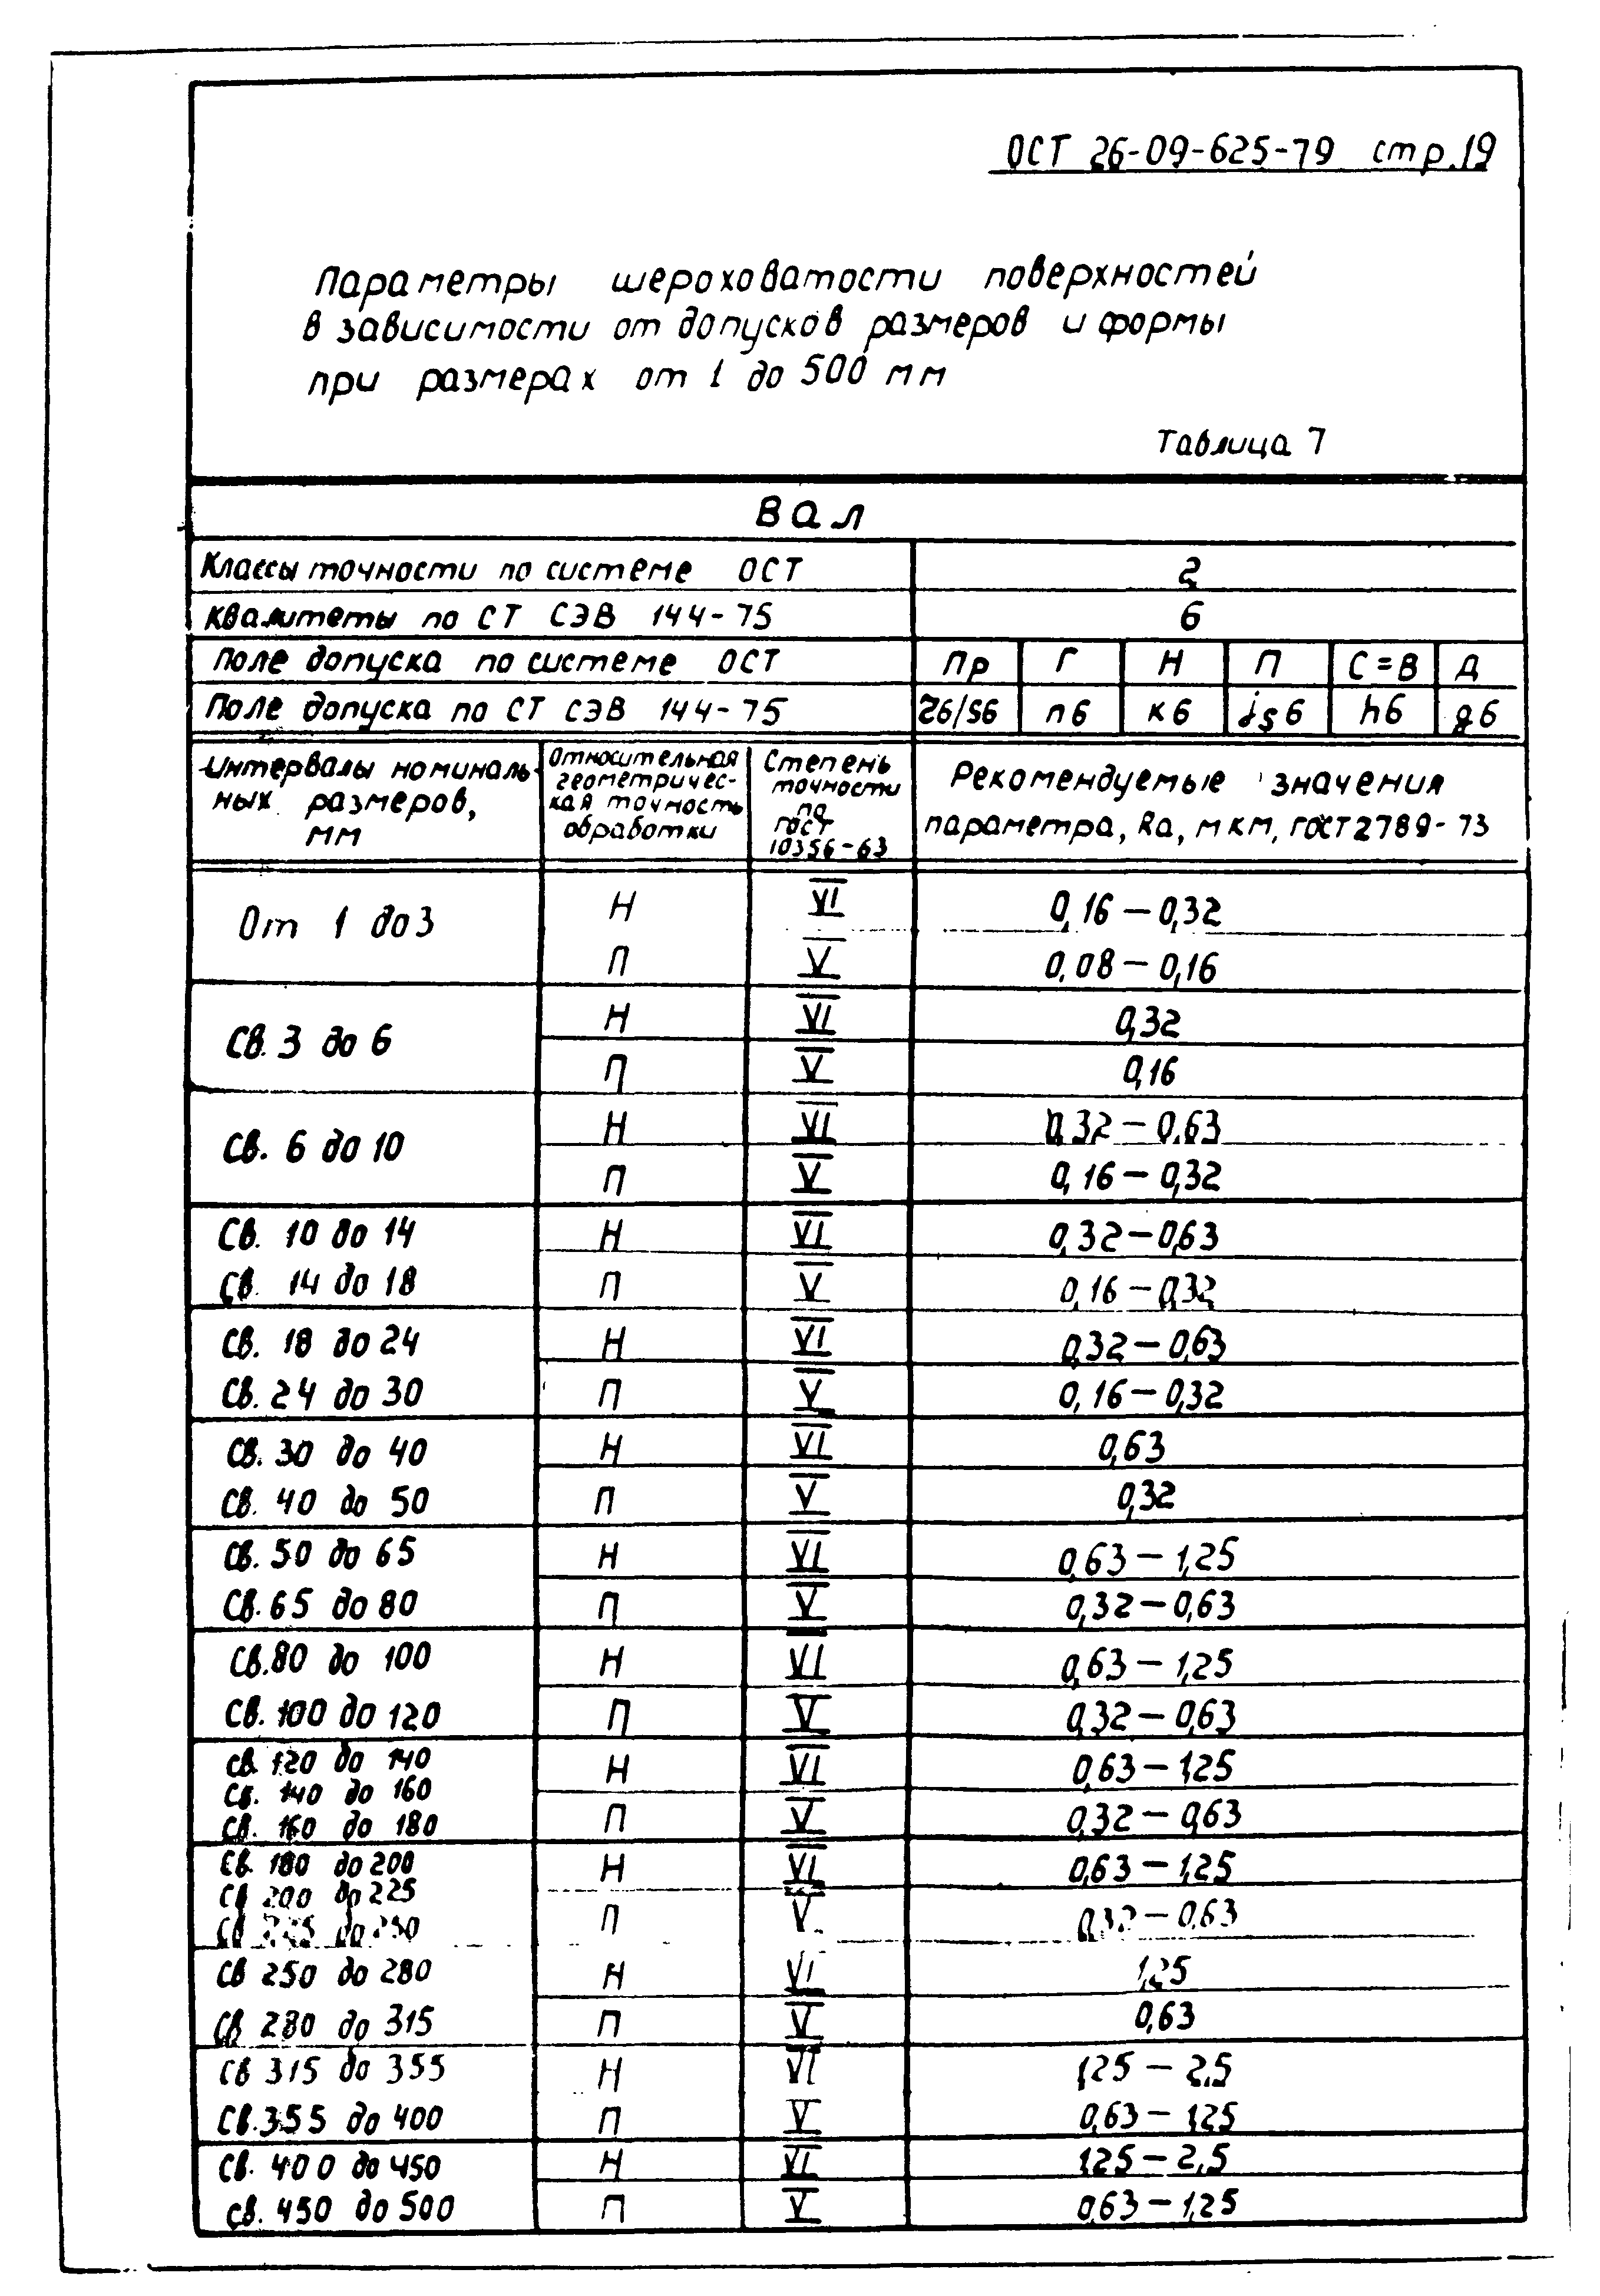 ОСТ 26-09-625-79 стр.19
Параметры шероховатости поверхностей
в зависимости от допусков размеров и формы
при размерах от 1 до 500 мм
Таблица 7
Вал
Классы точности по системе ОСТ 2
Квалитеты по СТ СЭВ 144-75 6
Поле допуска по системе ОСТ Пр Г Н П С=В Д
Поле допуска по СТ СЭВ 144-75 r6/s6 n6 к6 js6 h6 g6
Интервалы номиналь-
ных размеров,
мм
Относительная
геометричес-
кая точность
обработки
Степень
точности
по
ГОСТ
10356-63
Рекомендуемые значения
параметра, Ra, мкм, ГОСТ 2789-73
От 1 до 3 Н VI 0,16 – 0,32
П V 0,08 – 0,16
Св. 3 до 6 Н VI 0,32
П V 0,16
Св. 6 до 10 Н VI 0,32 – 0,63
П V 0,16 – 0,32
Св. 10 до 14 Н VI 0,32 – 0,63
Св. 14 до 18 П V 0,16 – 0,32
Св. 18 до 24 Н VI 0,32 – 0,63
Св. 24 до 30 П V 0,16 – 0,32
Св. 30 до 40 Н VI 0,63
Св. 40 до 50 П V 0,32
Св. 50 до 65 Н VI 0,63 – 1,25
Св. 65 до 80 П V 0,32 – 0,63
Св. 80 до 100 Н VI 0,63 – 1,25
Св. 100 до 120 П V 0,32 – 0,63
Св 120 до 140 Н VI 0,63 – 1,25
Св. 140 до 160
Св. 160 до 180 П V 0,32 – 0,63
Св. 180 до 200 Н VI 0,63 – 1,25
Св 200 до 225
Св 225 до 250 П V 0,32 – 0,63
Св 250 до 280 Н VI 1,25
Св 280 до 315 П V 0,63
Св 315 до 355 Н VI 1,25 – 2,5
Св. 355 до 400 П V 0,63 – 1,25
Св. 400 до 450 Н VI 1,25 – 2,5
Св. 450 до 500 П V 0,63 – 1,25